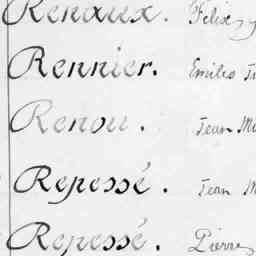 Renaux. Felix
Rennier. Emiles
Renou. Jean
Repessé. Jean
Repessé. Pierre